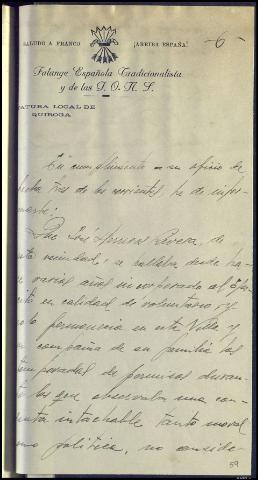 SALUDO A FRANCO ¡ARRIBA ESPAÑA!
-6-
Falange Española Tradicionalista
y de las J. O. N. S.
ATURA LOCAL DE
QUIROGA
En cumplimiento a su oficio de
fecha tres de los corrientes, he de infor-
marle:
Que José Rivera, de
esta vecindad, se hallaba desde ha-
varios años incorporado al Ejér-
cito en calidad de voluntario y
solo permanecia en esta Villa y
en compañia de su familia las
temporadas de permisos duran-
te las que observaba una con-
ducta intachable tanto moral
como politica, no conside-
59